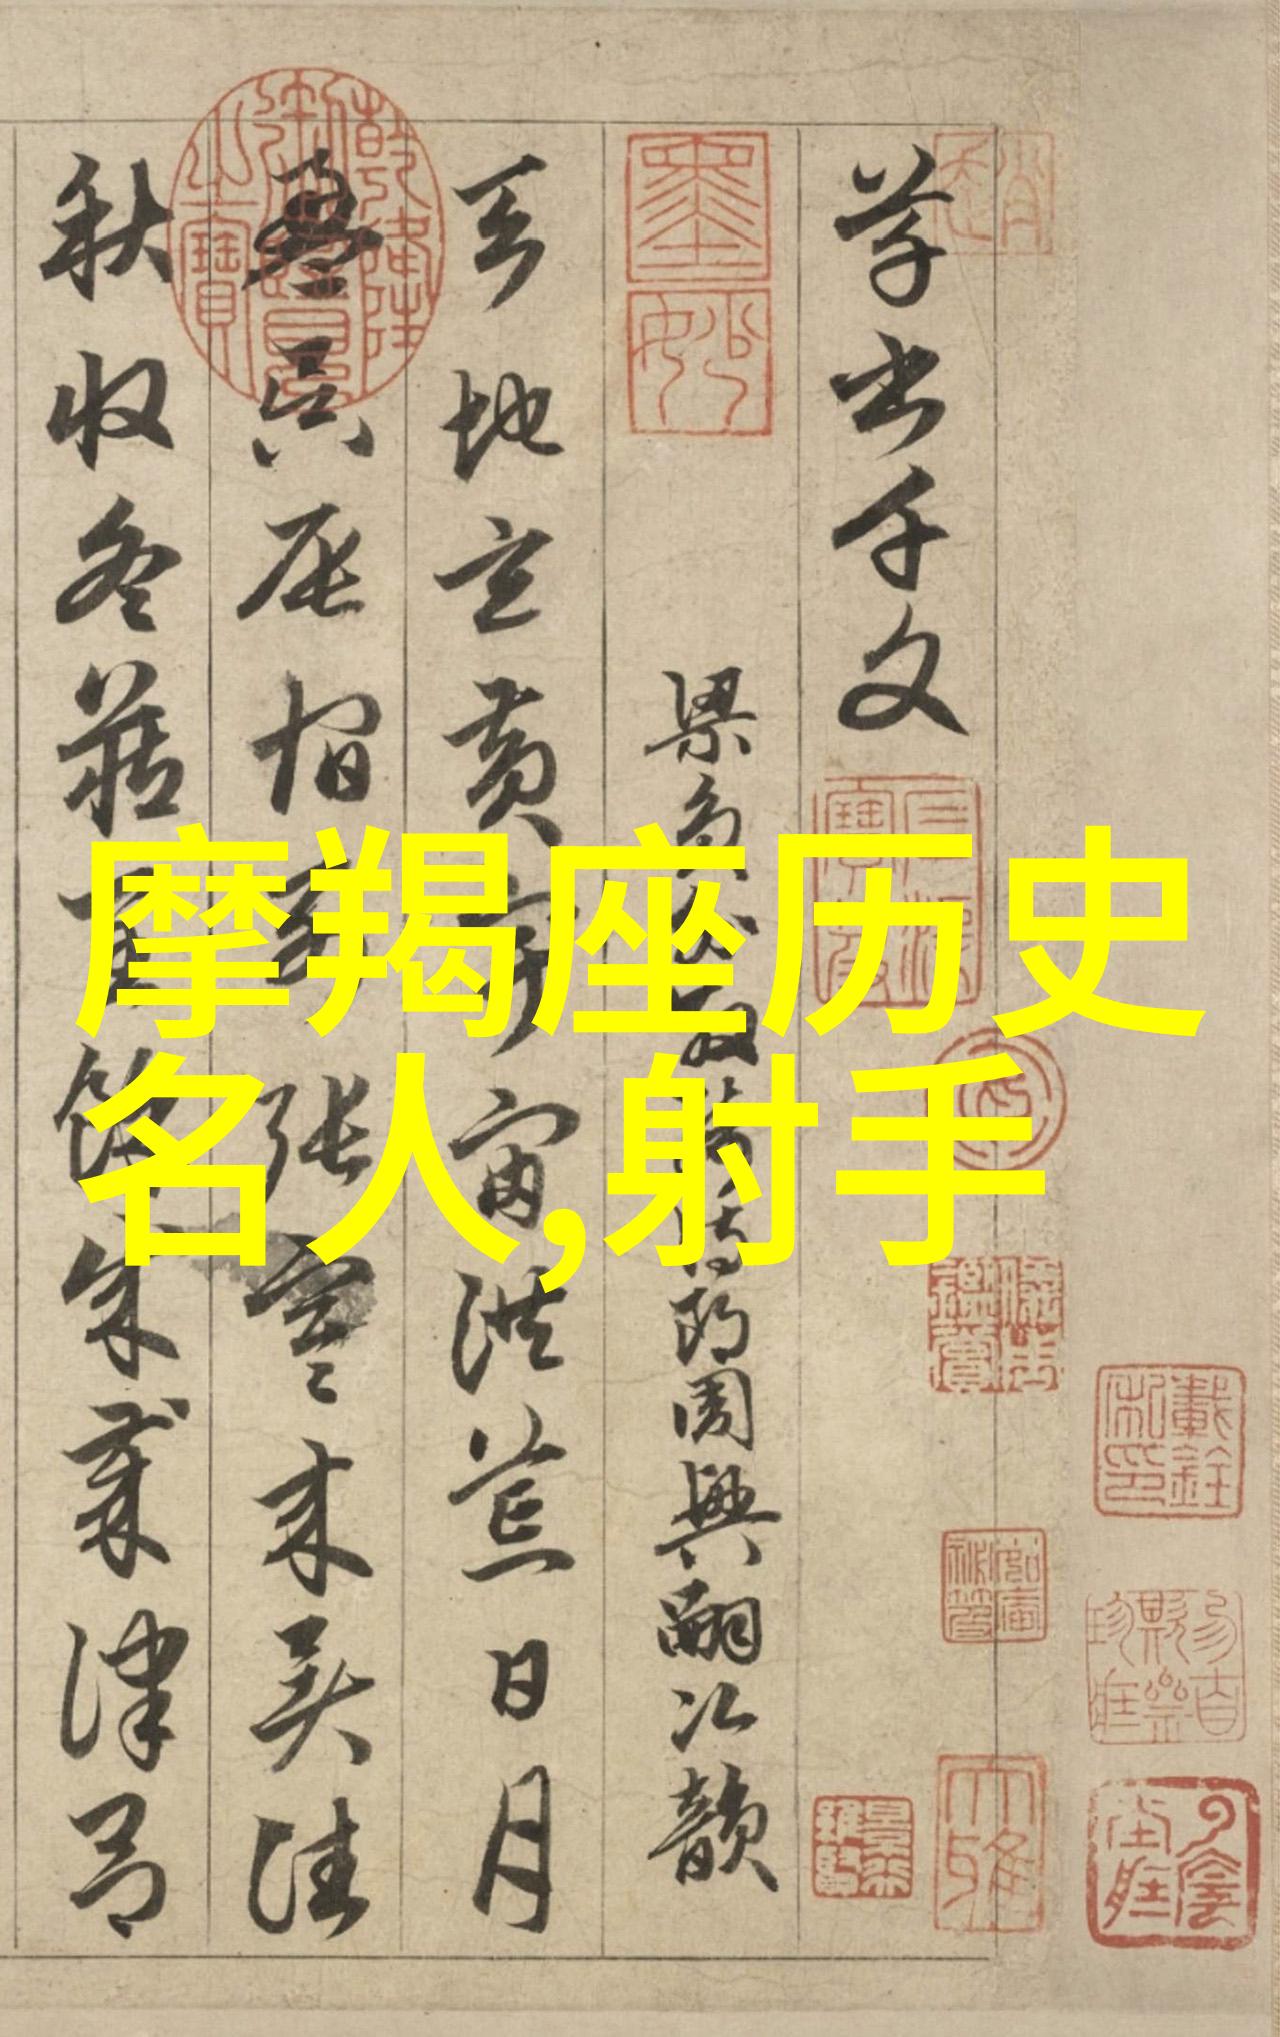 摩羯座历史
名人,射手
草書千文
梁員外散騎侍郎周興嗣次韻
天地玄黃宇宙洪荒日月
盈昃辰宿列張寒来暑往
秋收冬藏閏餘成歲律吕
墨妙
大雅